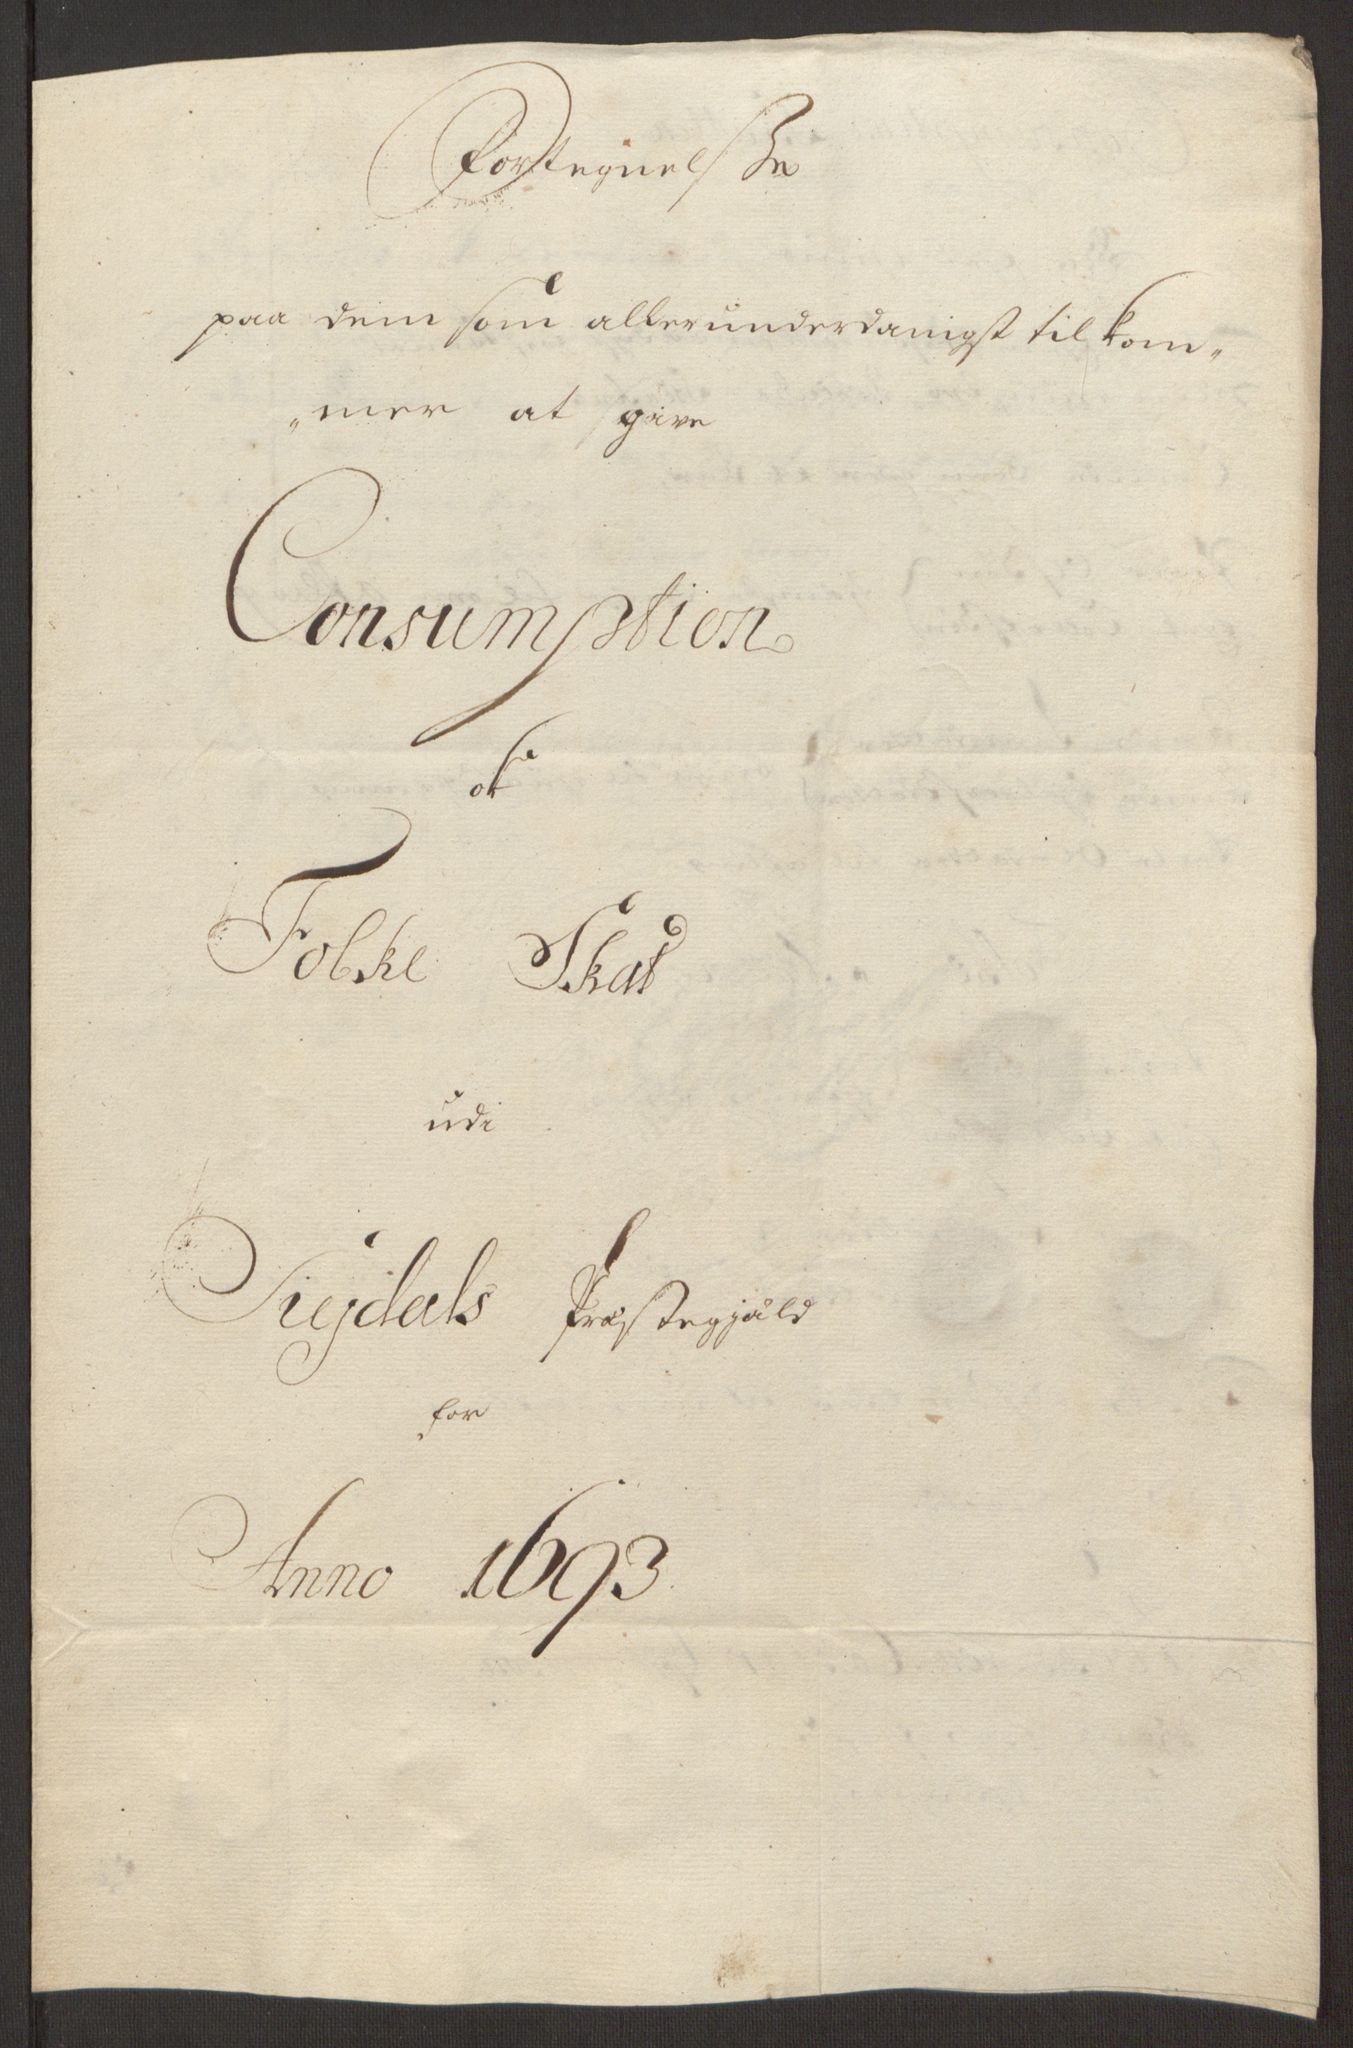 Fortegnelsse
paa dem som allerunderdanigst tilkom„
„mer at give
Consumption
ok
Folke Skat
udi
Sigdals Præstegjæld
for
Anno 1693